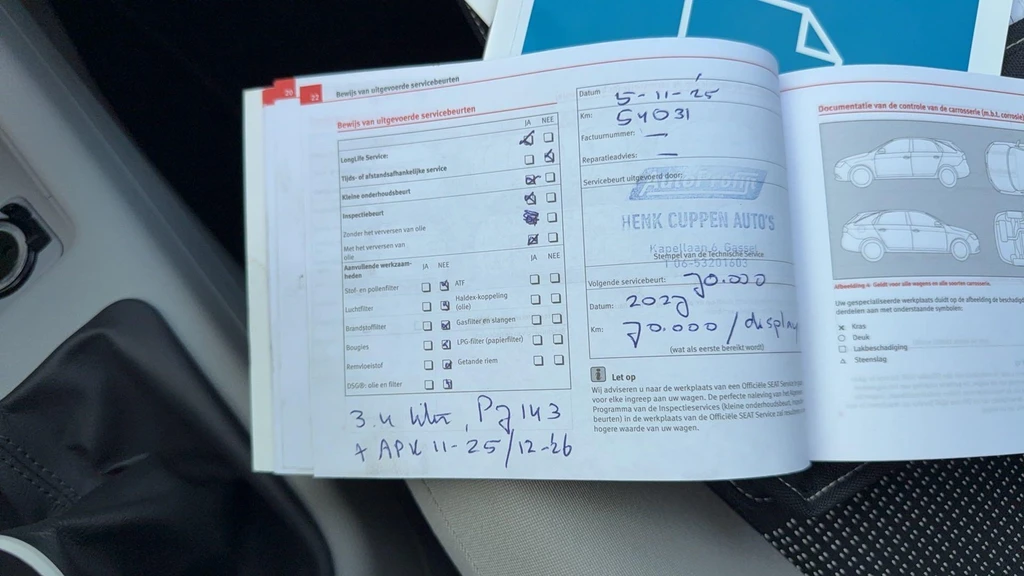 20
22
Bewijs van uitgevoerde servicebeurten
Bewijs van uitgevoerde servicebeurten
JA NEE
LongLife Service:
Tijds- of afstandsafhankelijke service
Kleine onderhoudsbeurt
Inspectiebeurt
Zonder het verversen van olie
Met het verversen van
olie
Aanvullende werkzaam-
heden
JA NEE
JA NEE
Stof- en pollenfilter
Luchtfilter
Brandstoffilter
Bougies
Remvloeistof
DSG®: olie en filter
ATF
Haldex-koppeling
(olie)
Gasfilter en slangen
LPG-filter (papierfilter)
Getande riem
3.4 liter,
+ APK 11-25/12-26
Datum
5-11-25
Km:
54031
Factuurnummer: —
Reparatieadvies: —
Servicebeurt uitgevoerd door:
AutoProfijt
HENK CUPPEN AUTO'S
Kapellaan 6, Gassel
Stempel van de Technische Service
T 06-53201603
Volgende servicebeurt: 70.000
Datum: 2027
Km: 70.000 / display
(wat als eerste bereikt wordt)
i Let op
Wij adviseren u naar de werkplaats van een Officiële SEAT
voor elke ingreep aan uw wagen. De perfecte naleving van het
Programma van de Inspectieservices (kleine onderhoudsbeurt,
beurten) in de werkplaats van de Officiële SEAT Service zal
hogere waarde van uw wagen.
Documentatie van de controle van de carrosserie (m.b.t. corrosie)
Afbeelding 4 Geldt voor alle wagens en alle soorten carrosserie.
Uw gespecialiseerde werkplaats duidt op de afbeelding de
derdelen aan met onderstaande symbolen:
x Kras
O Deuk
□ Lakbeschadiging
△ Steenslag